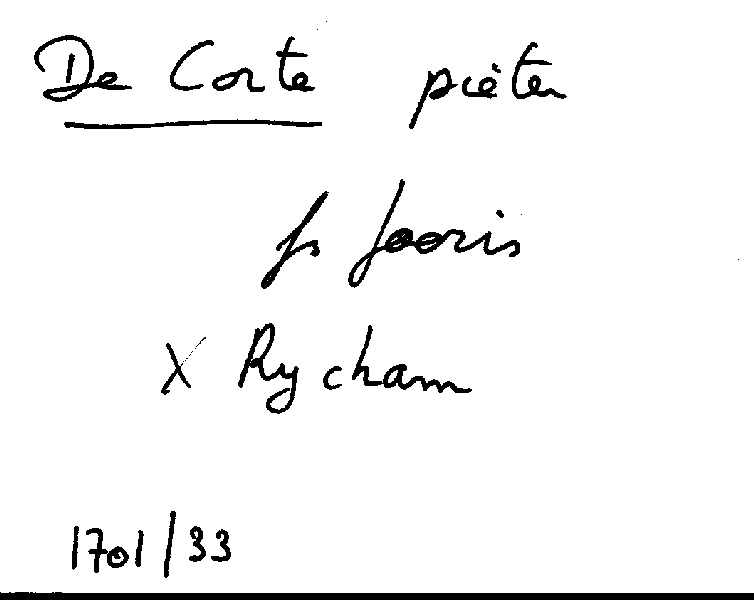 De Corte pieter
fs Jooris
X Rycham
1701/33